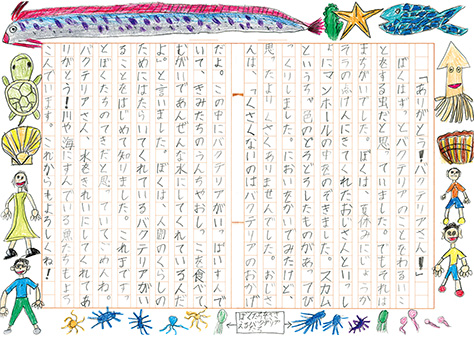 「ありがとう!バクテリアさん!」
ぼくはずっとバクテリアのことをわるいこ
とをする虫だと思っていました。でもそれは
まちがいでした。ぼくは、
きてくれたおじさんといっし
ょにマンホールの中をのぞきました。スカム
というちゃ色のどろどろしたものがあってび
っくりしました。においをかいでみたけど、
思ったよりくさくありませんでした。おじさ
んは、「くさくないのはバクテリアのおかげ
だよ。この中にバクテリアがいっぱいすんで
いて、きみたちのうんちやおしっこを食べて、
むがいであんぜんな水にしてくれているんだ
よ。」と言いました。ぼくは、人間のくらしの
ためにはたらいてくれているバクテリアがい
ることをはじめて知りました。これまでずっ
とぼくたちのてきだと思っていてごめんね。
バクテリアさん、水をきれいにしてくれてあ
りがとう!川や海にすんでいる魚たちもよろ
こんでいます。これからもよろしくね!